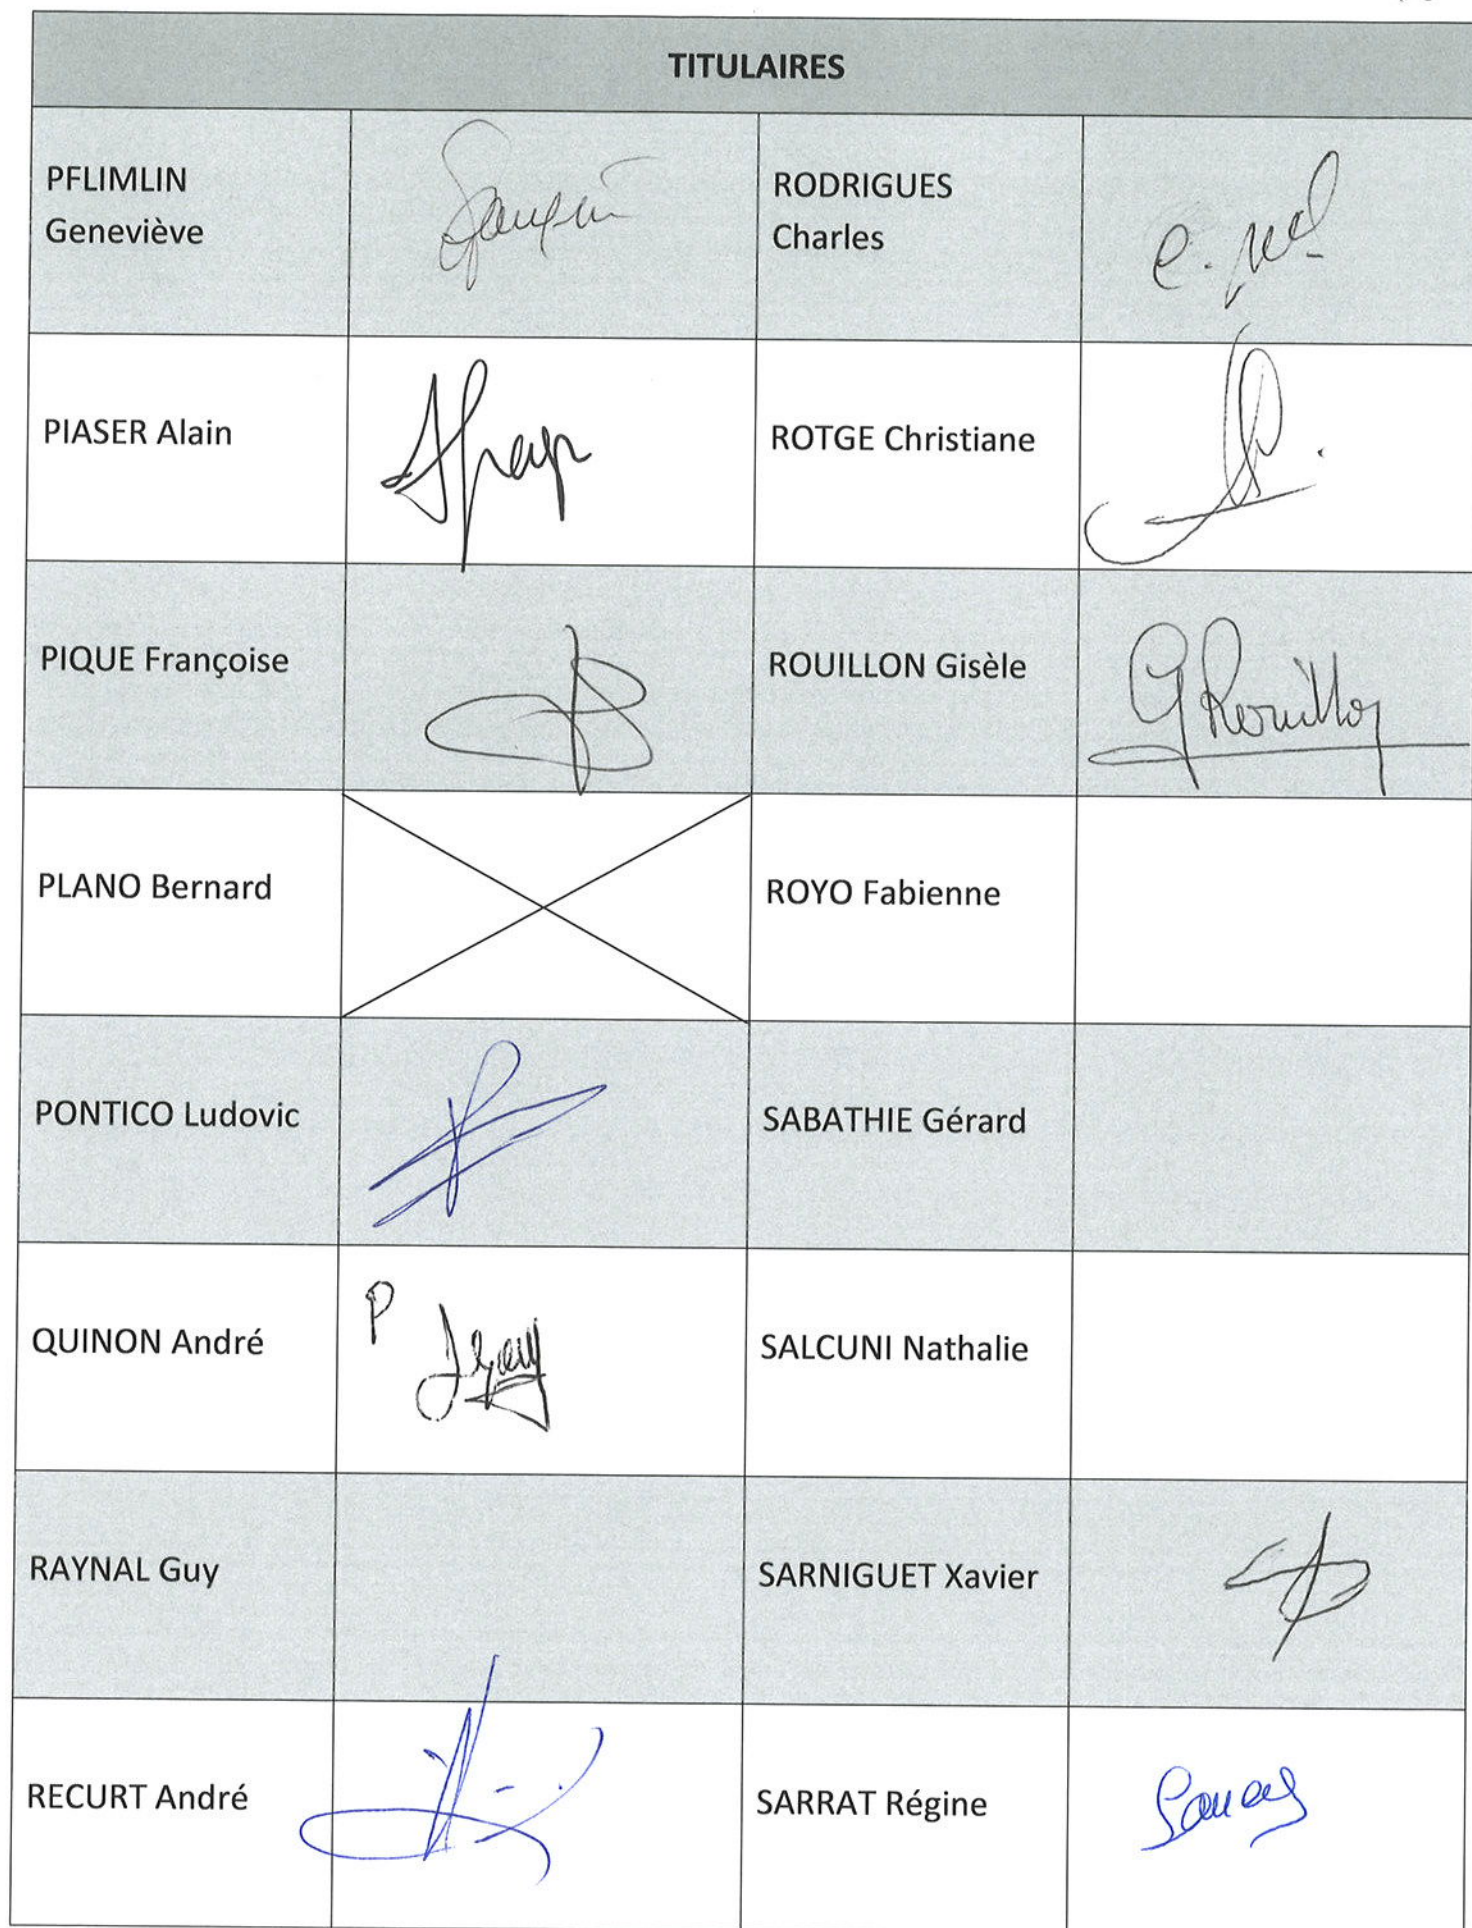 TITULAIRES
PFLIMLIN
Geneviève
RODRIGUES
Charles
PIASER Alain
ROTGE Christiane
PIQUE Françoise
ROUILLON Gisèle
G Rouillon
PLANO Bernard
ROYO Fabienne
PONTICO Ludovic
SABATHIE Gérard
QUINON André
P
SALCUNI Nathalie
RAYNAL Guy
SARNIGUET Xavier
RECURT André
SARRAT Régine